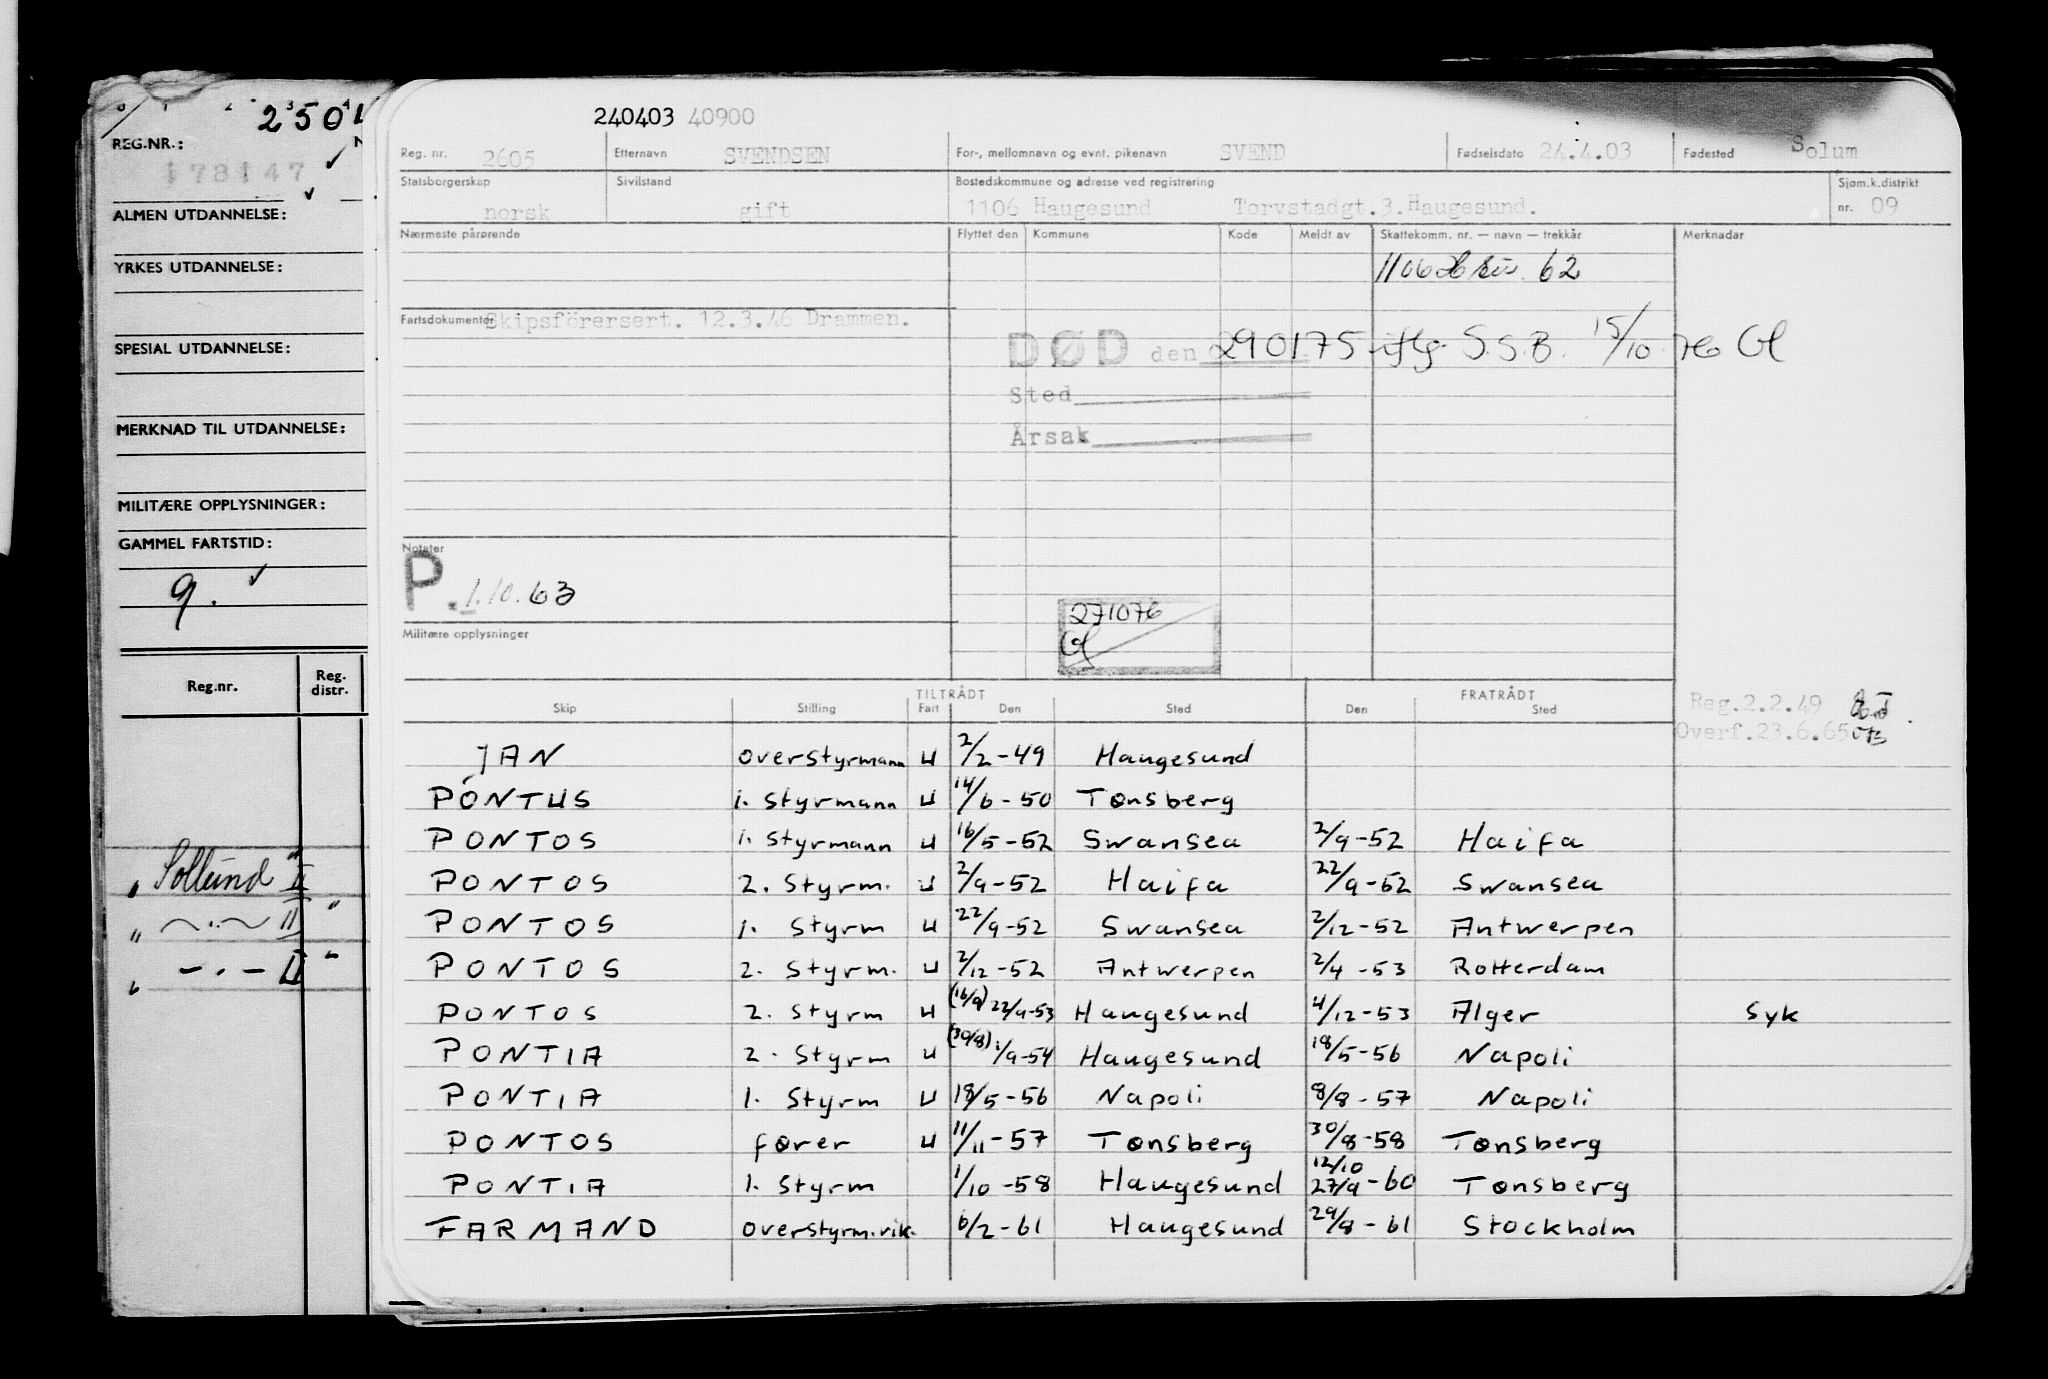 2504
REG.NR.:
178147
ALMEN UTDANNELSE:
YRKES UTDANNELSE:
SPESIAL UTDANNELSE:
MERKNAD TIL UTDANNELSE:
MILITÆRE OPPLYSNINGER:
GAMMEL FARTSTID:
9.
Reg.nr. Reg. distr.
"Sollund II"
" II "
" II "
240403 40900
Reg. nr. 2605 Etternavn SVENDSEN For-, mellomnavn og evnt. pikenavn SVEND Fødselsdato 24.4.03 Fødested Solum
Statsborgerskap Sivilstand Bostedskommune og adresse ved registrering Sjøm.k.distrikt
norsk gift 1106 Haugesund Torvstadgt.3.Haugesund. nr. 09
Nærmeste pårørende Flyttet den Kommune Kode Meldt av Skattekomm. nr. — navn — trekkår Merknader
1106 62
Fartsdokumenter Skipsförersert. 12.3.46 Drammen.
DØD den 290175 iflg. S.S.B. 15/10 76 Gl
Sted
Årsak
Notater
P. 1.10.63
271076
Gl
Militære opplysninger
TILTRÅDT FRATRÅDT
Skip Stilling Fart Den Sted Den Sted
Reg.2.2.49
Overf.23.6.65
JAN overstyrmann U 2/2-49 Haugesund
PONTUS 1. styrmann U 14/6-50 Tønsberg
PONTOS 1. styrmann U 16/5-52 Swansea 2/9-52 Haifa
PONTOS 2. styrm. U 2/9-52 Haifa 22/9-52 Swansea
PONTOS 1. styrm U 22/9-52 Swansea 2/12-52 Antwerpen
PONTOS 2. styrm. U 2/12-52 Antwerpen 2/4-53 Rotterdam
PONTOS 2. styrm U (16/9) 22/9-53 Haugesund 4/12-53 Alger Syk
PONTIA 2. styrm U (30/8) 1/9-54 Haugesund 18/5-56 Napoli
PONTIA 1. styrm U 18/5-56 Napoli 8/8-57 Napoli
PONTOS fører U 11/11-57 Tønsberg 30/8-58 Tønsberg
PONTIA 1. styrm 1/10-58 Haugesund 12/10 27/9-60 Tønsberg
FARMAND overstyrm.vik. 6/2-61 Haugesund 29/8-61 Stockholm